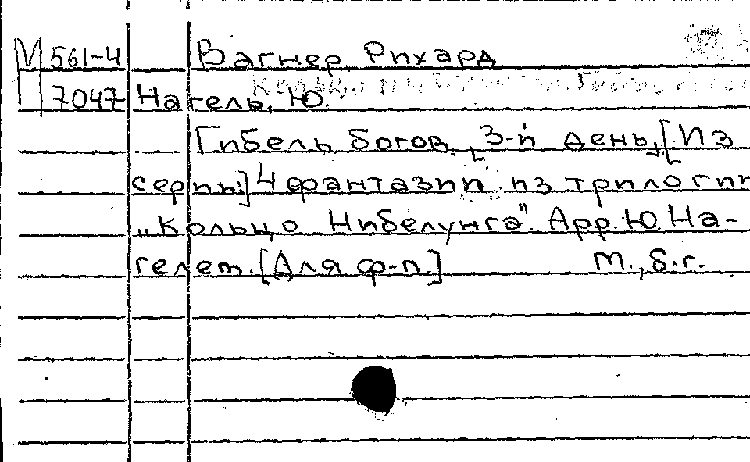 М 561-4 Вагнер Рихард
7047 Нагель, Ю.
Гибель богов, 3-й день, [Из
серии] 4 фантазии из трилогии
„Кольцо Нибелунга". Арр. Ю. На-
гелет. [Для ф-п.] М., б.г.